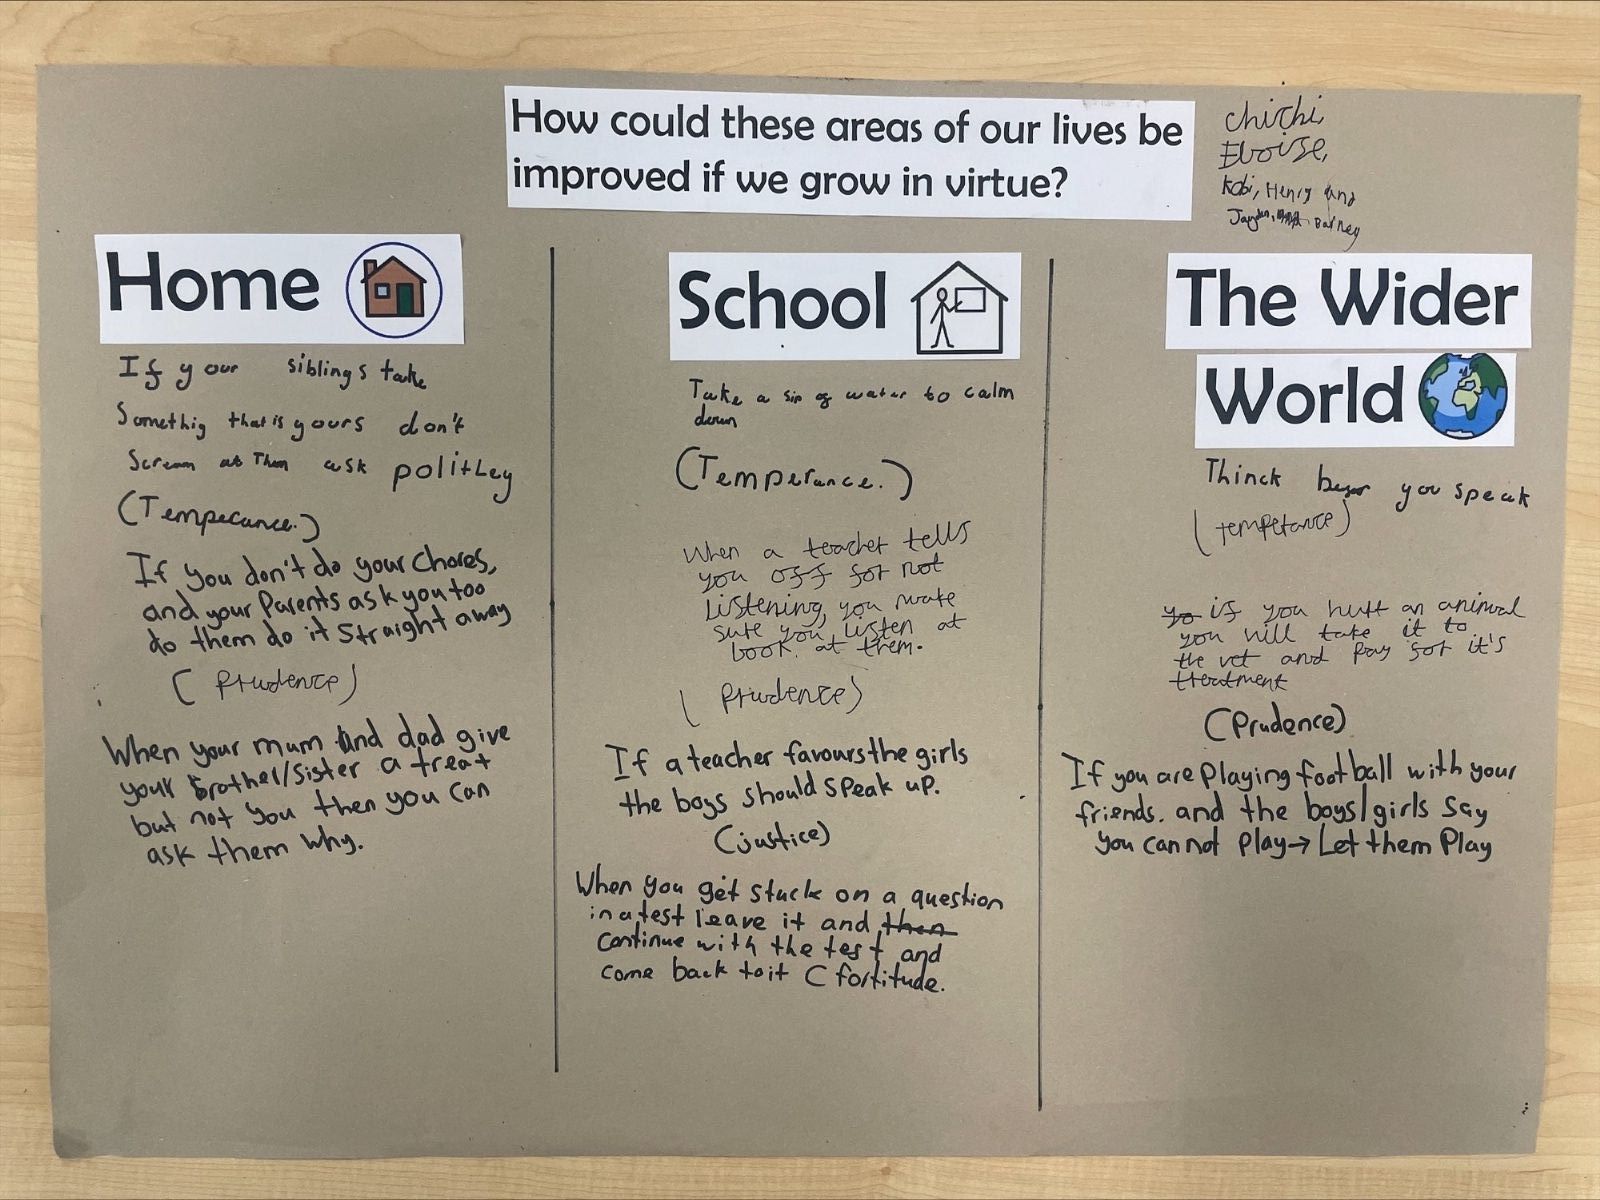 How could these areas of our lives be
improved if we grow in virtue?
Chichi,
Eloise,
Kobi, Henry and
Jayden, Barney
Home
If your siblings take
Somethig that is yours don't
Scream at Them ask politley
(Temperance.)
If you don't do your Chores,
and your Parents ask you too
do them do it Straight away
(Prudence)
When your mum and dad give
your Brother/Sister a treat
but not you then you can
ask them why.
School
Take a sip of water to calm
down
(Temperance.)
When a teacher tells
you off for not
Listening, you make
sure you listen at
look. at them.
(Prudence)
If a teacher favours the girls
the boys should speak up.
(justice)
When you get stuck on a question
in a test leave it and then
continue with the test and
come back to it (fortitude.
The Wider
World
Thinck before you speak
(temperance)
yo if you hurt an animal
you will take it to
the vet and pay for it's
treatment
(Prudence)
If you are Playing football with your
friends. and the boys/girls say
you can not Play→ Let them Play